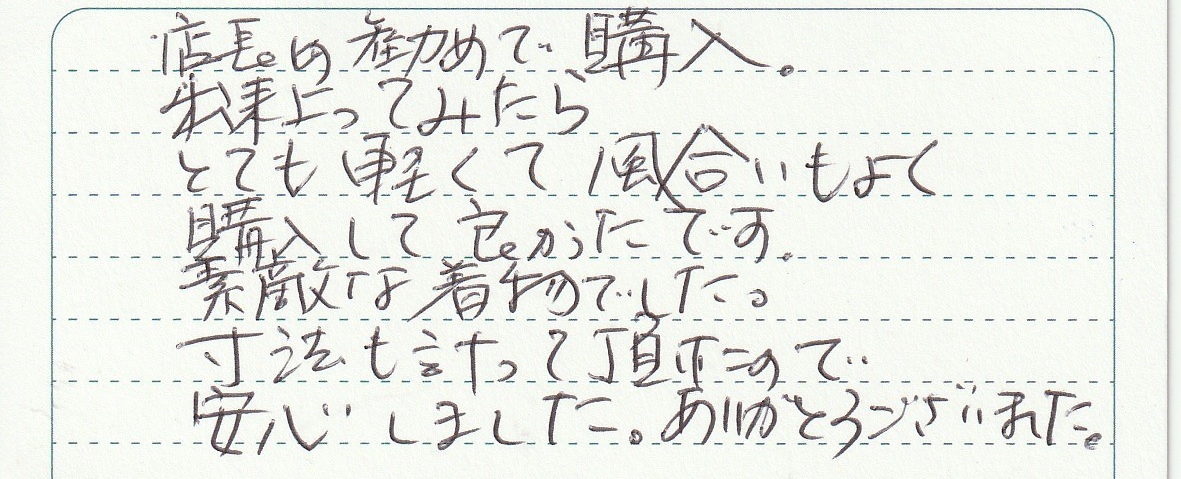 店長の勧めで購入。
出来上ってみたら
とても軽くて風合いもよく
購入して良かったです。
素敵な着物でした。
寸法も計って頂けたので
安心しました。ありがとうございました。